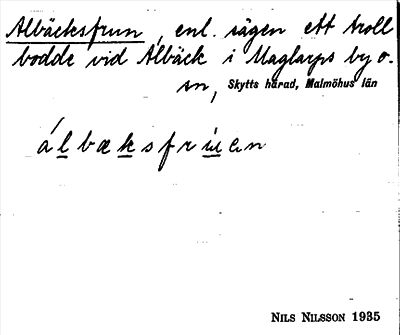 Albäcksfrun, enl. sägen ett troll
bodde vid Albäck i Maglarps by o.
sn, Skytts härad, Malmöhus län
álbæksfrúen
NILS NILSSON 1935